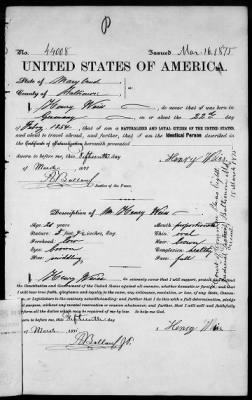 P
No. 44008 Issued Mar. 16, 1875
UNITED STATES OF AMERICA.
State of Maryland
County of Baltimore
I, Henry Weis, do swear that I was born in
Germany on or about the 22nd day
of Feby 1854, that I am a NATURALIZED AND LOYAL CITIZEN OF THE UNITED STATES,
and about to travel abroad, and further, that I am the Identical Person described in the
Certificate of Naturalization herewith presented
Sworn to before me, this Fifteenth day
of March 187 Henry Weis
Justice of the Peace.
Description of Mr Henry Weis
Age: 21 years Mouth: proportionate
Stature: feet inches, Eng. Chin: oval
Forehead: low Hair: brown
Eyes: brown Complexion: healthy
Nose: middling Face: full
I, Henry Weis do solemnly swear that I will support, protect, and defend
the Constitution and Government of the United States against all enemies, whether domestic or foreign; and that
I will bear true faith, allegiance, and loyalty to the same, any ordinance, resolution, or law of any State, Convention,
or Legislature to the contrary notwithstanding; and further, that I do this with a full determination, pledge,
or purpose, without any mental reservation or evasion whatsoever; and further, that I will well and faithfully
perform all the duties which may be required of me by law. So help me God.
Sworn to before me, this Fifteenth day
of March 187 Henry Weis